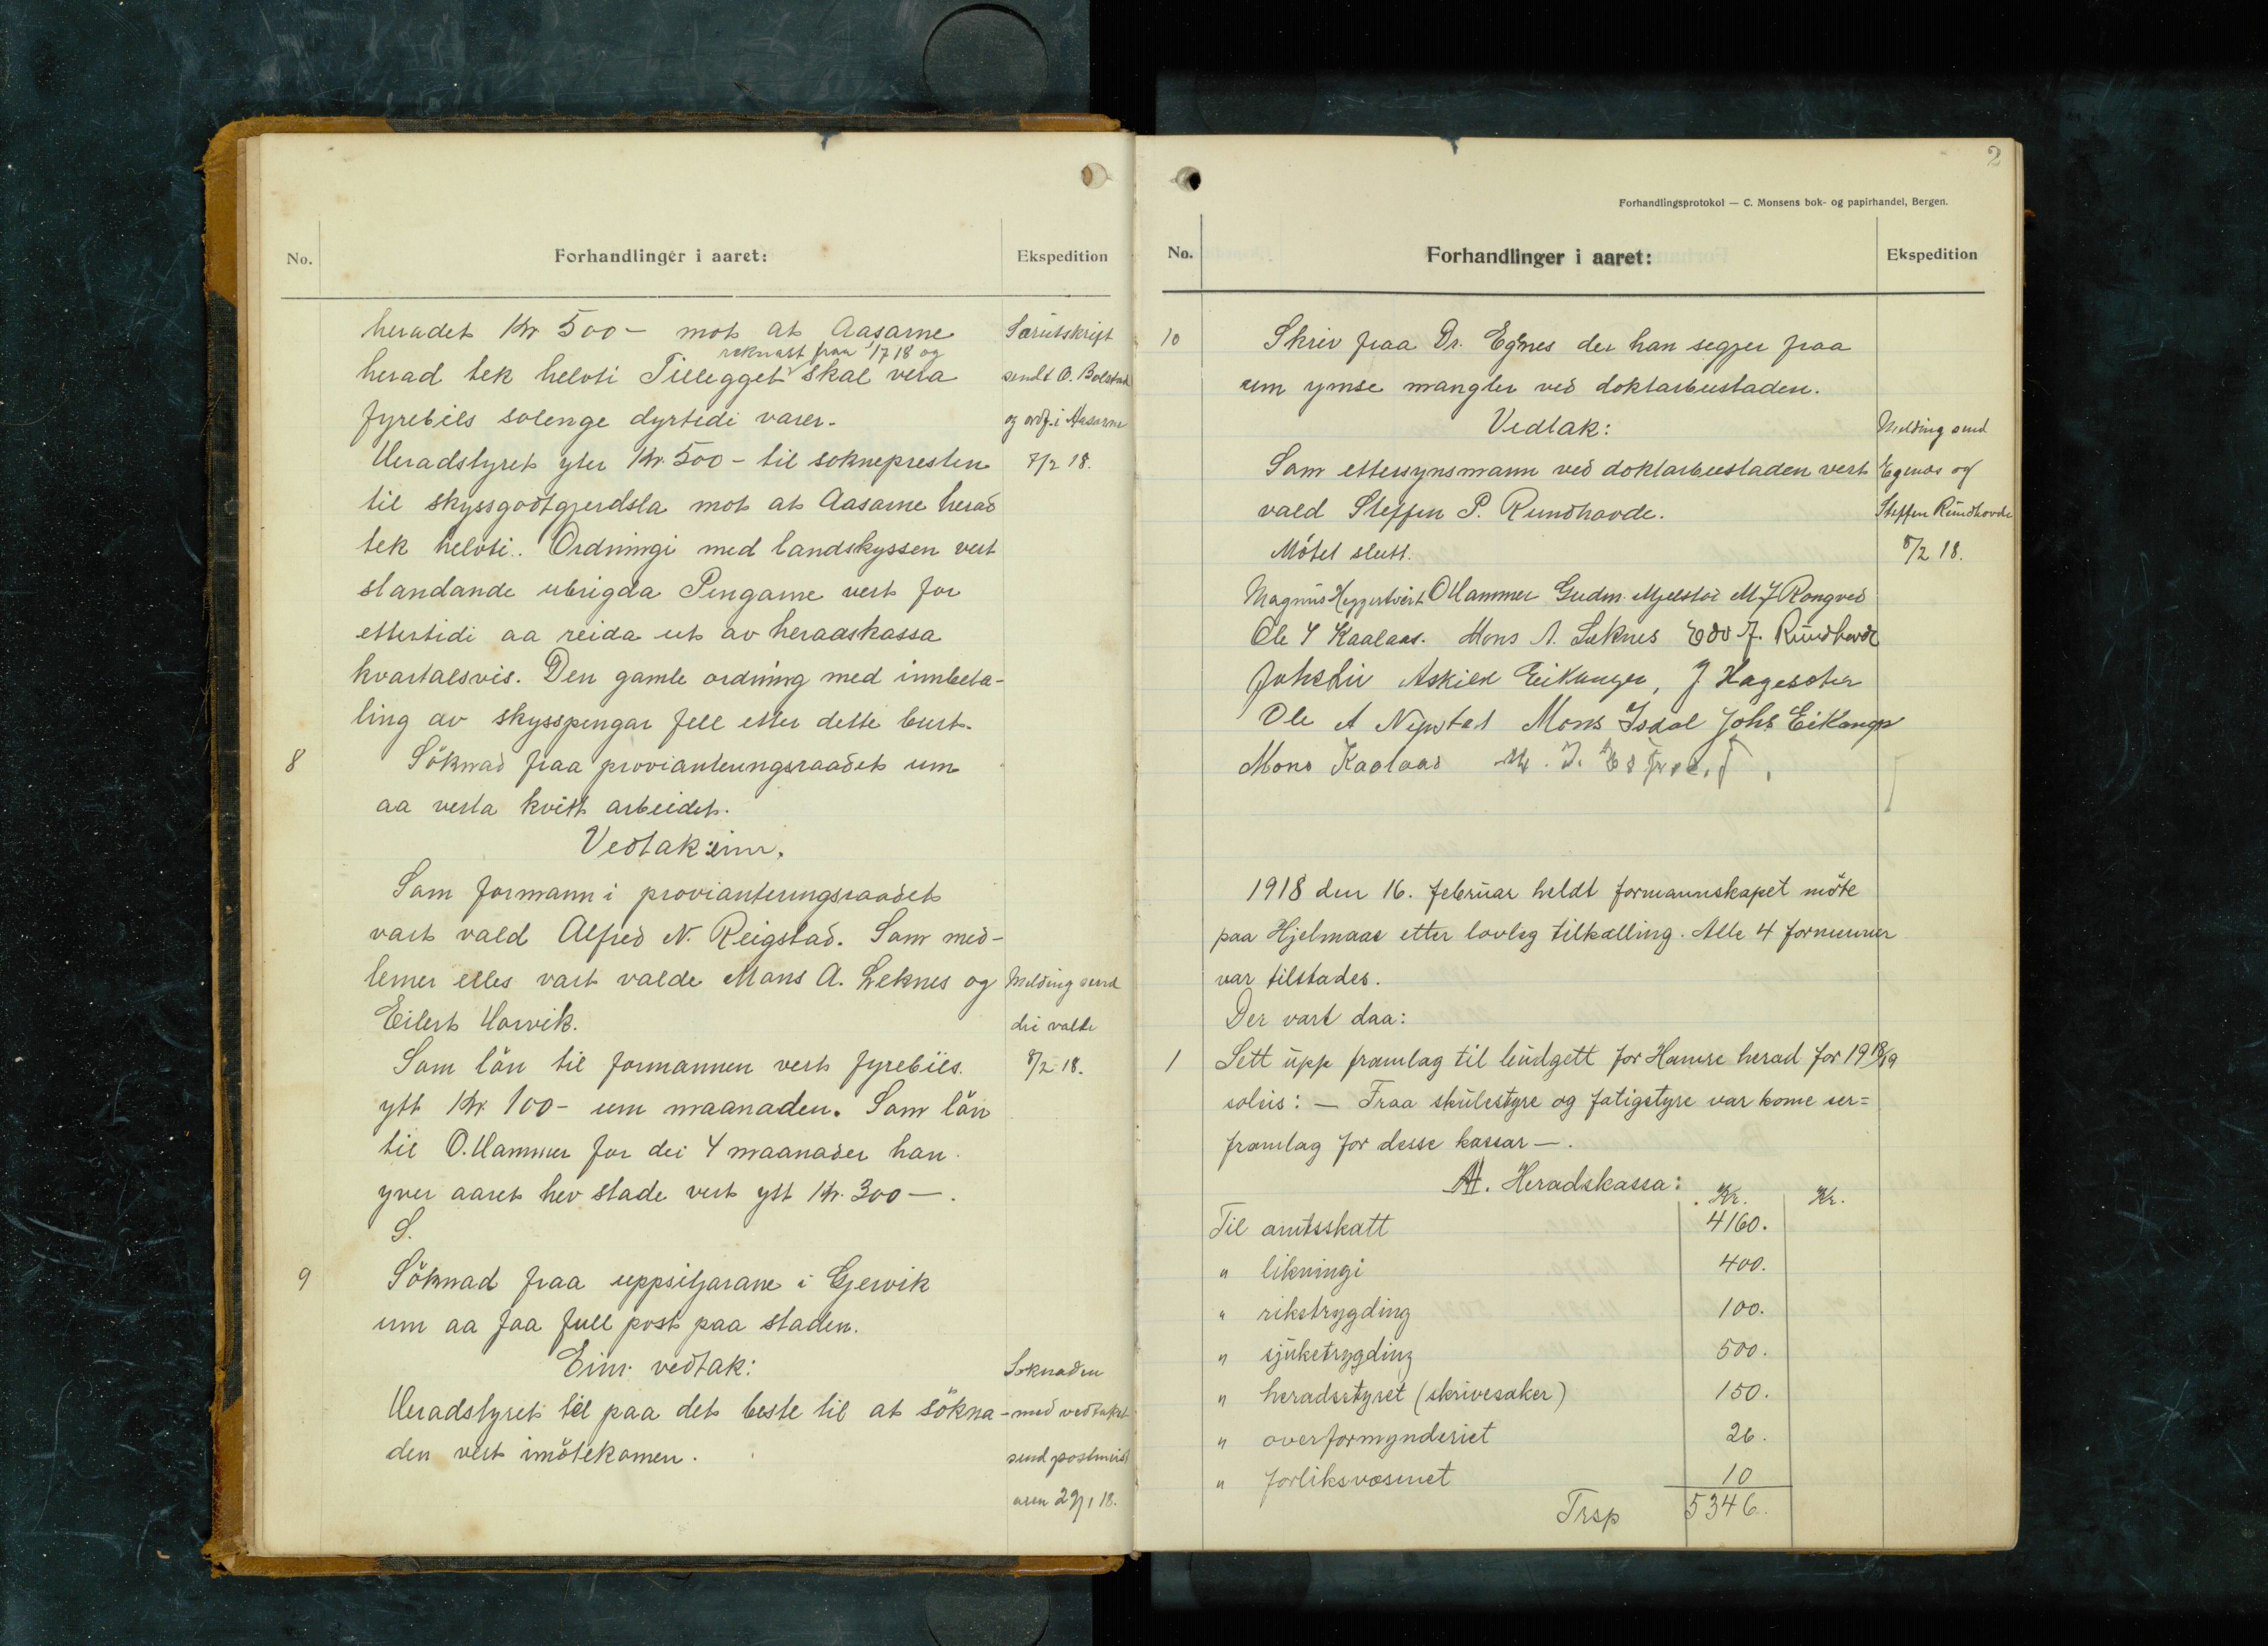 No.
Forhandlinger i aaret:
Ekspedition
heradet Kr 500 - mot at Aasarne
reknast fraa 1/7 18 og
herad tek helvti Tillegget skal vera
fyrebils solenge dyrtidi varer.
Heradstyret yter Kr. 500 - til soknepresten
til skyssgodtgjerdsla mot at Aasarne herad
tek helvti. Ordningi med landskyssen vert
standande ubrigda Pengarne vert for
ettertidi aa reida ut av heradskassa
kvartalsvis. Den gamle ordning med innbeta-
ling av skysspengar fell etter dette burt.
Særutskrift
sendt O. Bolstad
og ordf. i Aasarne
7/2 18.
8
Söknad fraa provianteringsraadet um
aa verta kvitt arbeidet.
Vedtak: einr.
Som formann i provianteringsraadet
vart vald Alfred N. Reigstad. Som med-
lemer elles vart valde Mons A. Leknes og
Eilert Horvik.
Som lön til formannen vert fyrebils
ytt Kr. 100 - um maanaden. Som lön
til O. Hammer for dei 4 maanader han
yver aaret hev stade vert ytt Kr. 300 -.
S.
Melding send
dei valde
8/2 18.
9
Söknad fraa uppsitjarane i Gjervik
um aa faa full post paa staden.
Einr. vedtak:
Heradstyret tel paa det beste til at sökna-
den vert imötekomen.
Soknaden
med vedtaket
send postmeist
aren 29/1 18.
2
Forhandlingsprotokol — C. Monsens bok- og papirhandel, Bergen.
No.
Forhandlinger i aaret:
Ekspedition
10
Skriv fraa Dr. Egnes der han segjer fraa
um ymse mangler ved doktarbustaden.
Vedtak:
Som ettersynsmann ved doktarbustaden vert
vald Steffen P. Rundhovde.
Mötet slutt.
Melding send
Egenes og
Steffen Rundhovde
8/2 18.
Magnus Heggertveit O Hammer Gudm. Mjelstad M J Rongved
Ole Y Kaalaas. Mons A. Leknes Edv J. Rundhovde
Johs Askild Eikanger, J Hageseter
Ole A Mons Isdal Johs Eikanger
Mons Kaalaas M. J.
1918 den 16. februar heldt formannskapet möte
paa Hjelmaas etter lovleg tilkalling. Alle 4 formenner
var tilstades.
Der vart daa:
1
Sett upp framlag til budgett for Hamre herad for 1918/19
soleis: — Fraa skulestyre og fatigstyre var kome ser=
framlag for desse kassar —.
A. Heradskassa:
Kr. Kr.
Til amtsskatt 4160.
" likningi 400.
" rikstrygding 100.
" sjuketrygding 500.
" heradsstyret (skrivesaker) 150.
" overformynderiet 26.
" forliksvæsenet 10
Trsp 5346.